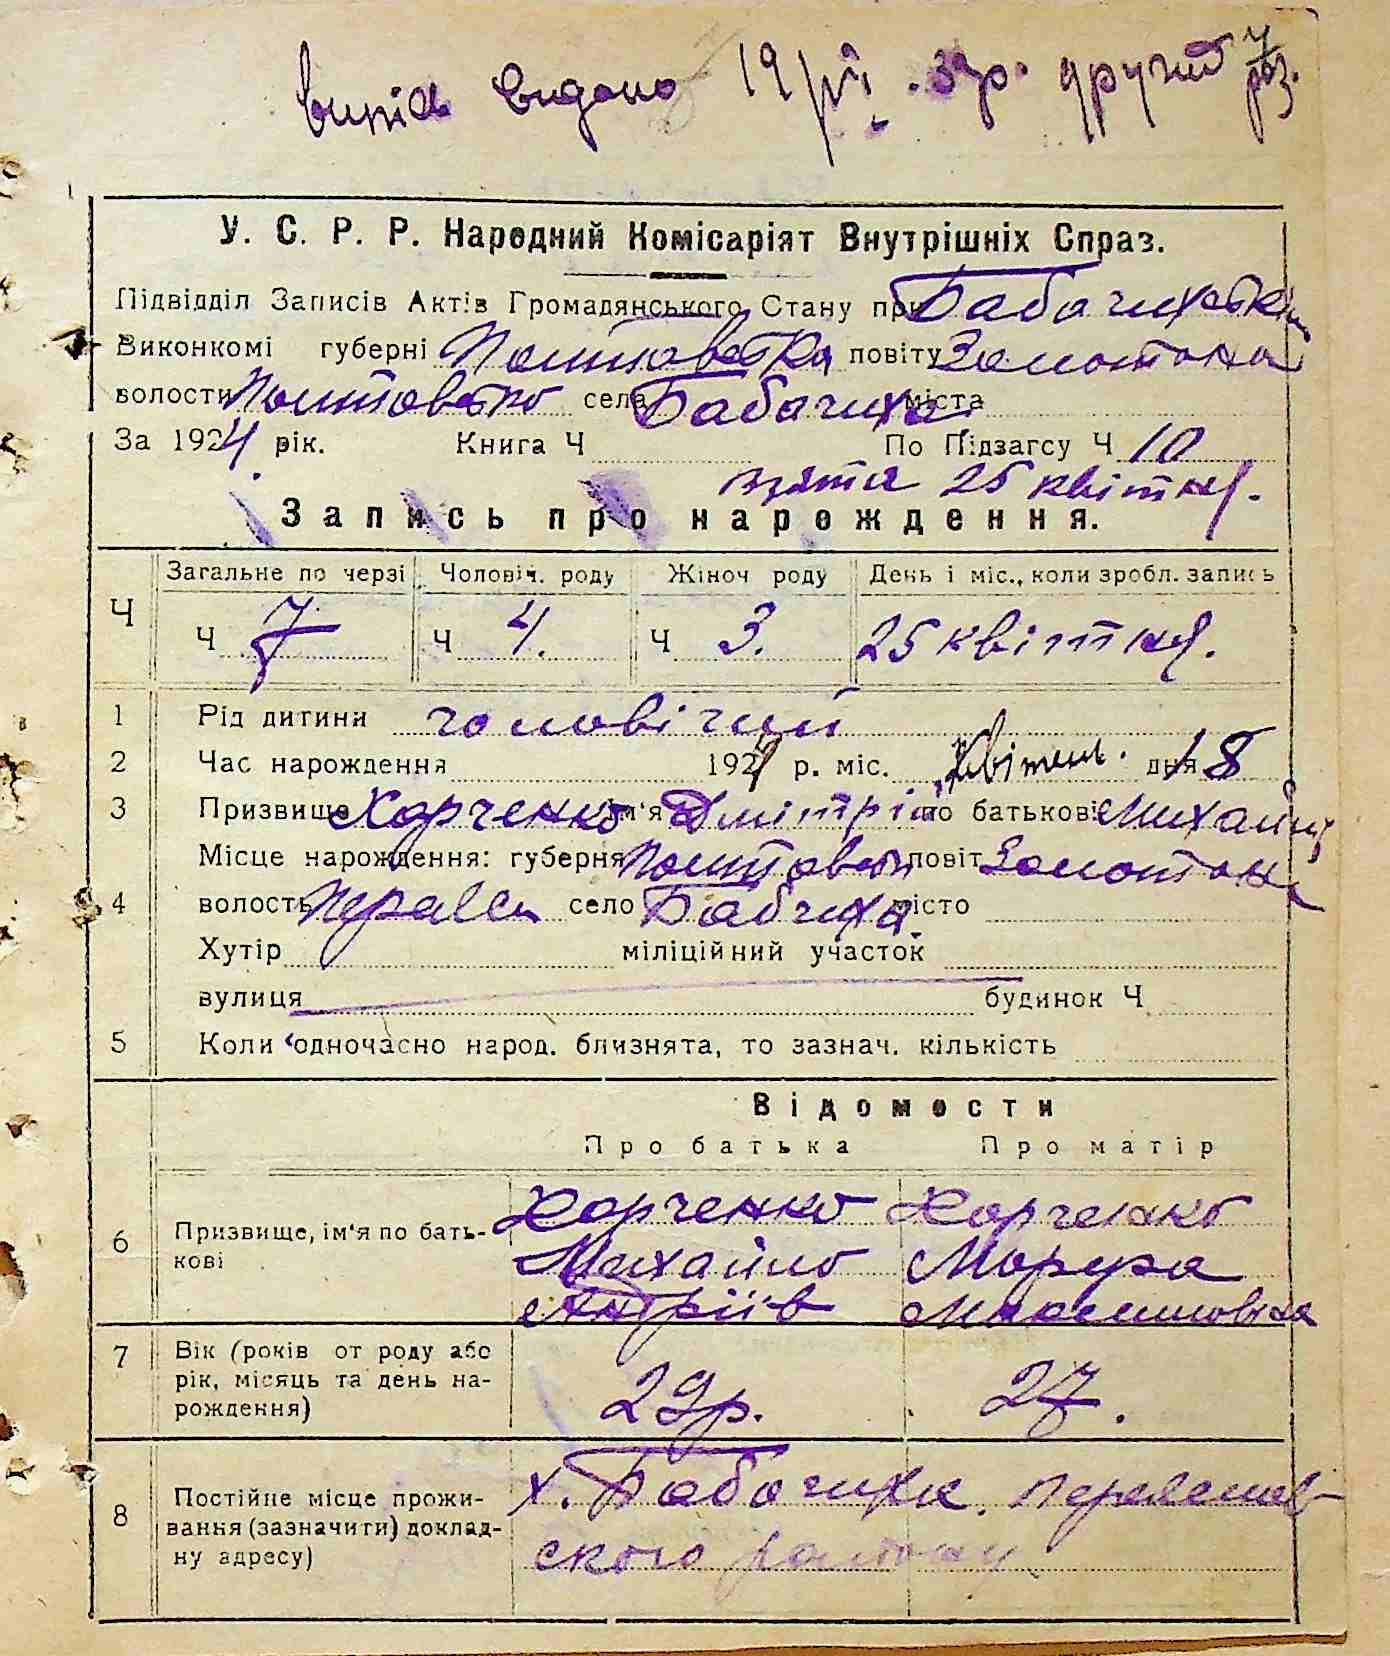 випис видано 19/VI. 39р. другий раз.
У. С. Р. Р. Народний Комісаріят Внутрішніх Справ.
Підвідділ Записів Актів Громадянського Стану при Бабачихськім
Виконкомі губерні Полтавська повіту Золотоніс
волости села Бабачиха міста
За 1924 рік. Книга Ч По Підзагсу Ч 10
25 квітня.
Запись про нарождення.
Загальне по черзі Чоловіч. роду Жіноч роду День і міс., коли зробл. запись
Ч Ч 7 Ч 4. Ч 3. 25 квітня.
1 Рід дитини чоловічий
2 Час нарождення 1924 р. міс. Квітень. дня 18
3 Призвище Харченко ім'я Дмітрій по батькові Михайл
Місце нарождення: губерня повіт Золотон
4 волость село Бабчиха. місто
Хутір міліційний участок
вулиця будинок Ч
5 Коли одночасно народ. близнята, то зазнач. кількість
Відомости
Про батька Про матір
6 Призвище, ім'я по бать-
кові
Харченко Харченко
Михайло Марфа
Андріїв Максимовна
7 Вік (років от роду або
рік, місяць та день на-
рождення)
29р. 27.
8 Постійне місце прожи-
вання (зазначити) доклад-
ну адресу)
х. Бабачиха, Переяслав-
ского району